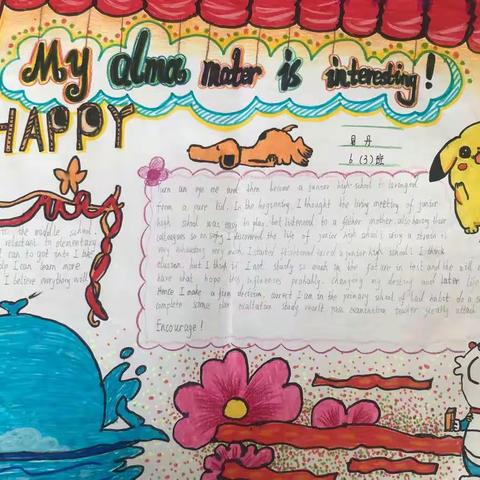 My alma mater is interesting!
HAPPY
6(3)班
the middle school.
reluctant to elementary
I can to get into the
I can learn more
I believe everything will
turn an age me and then become a junior high school
from a pure kid. In the beginning, I thought the living meeting of junior
high school was easy to play, but listened to a father mother, also having blue
colleagues so on saying I discovered the life of junior high school, using a strain is
very exhausting very much. I started a junior high school. I think
elusion, but I think if I not study so much in the future in this and the will
have what hope life influences probably, changing my destiny and later life
Hence I make a firm decision, correct I am in the primary school of bad habit do a
complete some study result pass examination teacher attach
Encourage!